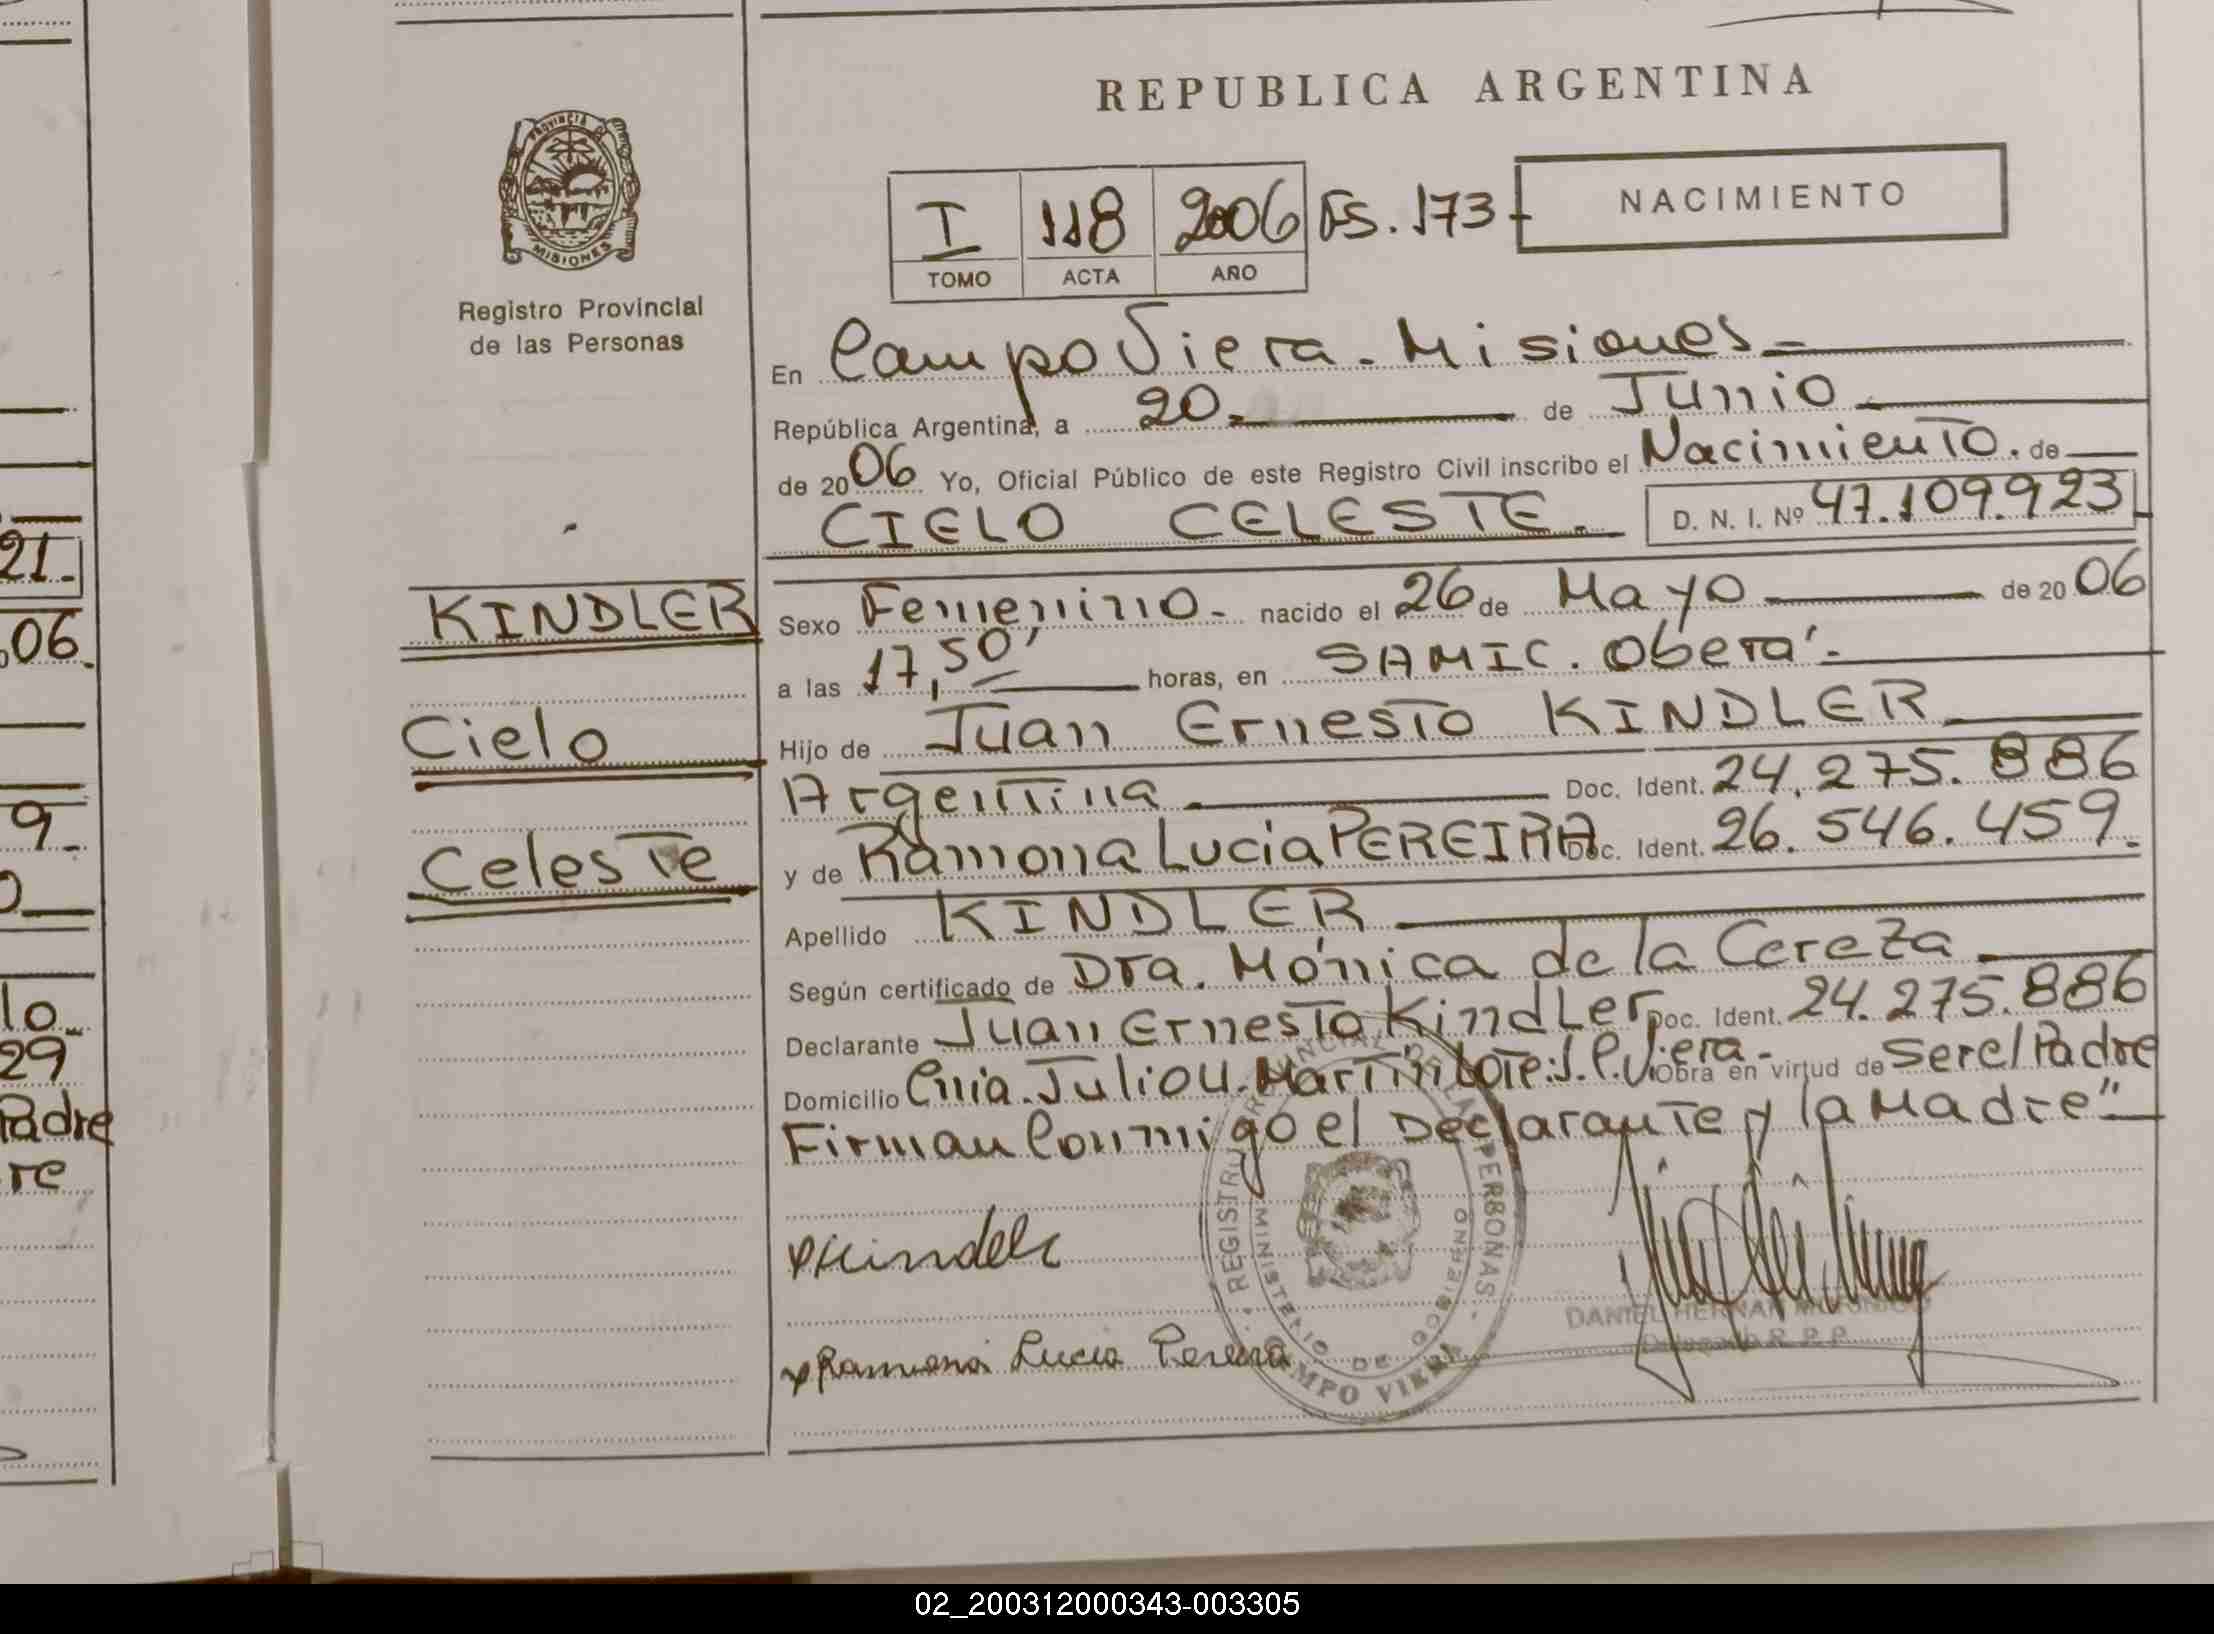 REPUBLICA ARGENTINA
PROVINCIA DE MISIONES
Registro Provincial
de las Personas
I 118 2006 FS. 173 -
TOMO ACTA AÑO
NACIMIENTO
En Campo Viera - Misiones -
República Argentina, a 20 - de Junio -
de 2006 Yo, Oficial Público de este Registro Civil inscribo el Nacimiento. de
CIELO CELESTE. D. N. I. Nº 47.109.923
KINDLER
Cielo
Celeste
Sexo Femenino - nacido el 26 de Mayo de 20 06
a las 17,50' horas, en SAMIC. Oberá. -
Hijo de Juan Ernesto KINDLER
Argentina Doc. Ident. 24.275.886
y de Ramona Lucia PEREIRA Doc. Ident. 26.546.459.
Apellido KINDLER
Según certificado de Dra. Mónica de la Cereza
Declarante Juan Ernesto KindLer Doc. Ident. 24.275.886
Domicilio Cnia. Julio U. Martin Lote: J. C. Viera - obra en virtud de Ser el Padre
Firman Conmigo el Declarante y la Madre"
REGISTRO PROVINCIAL DE LAS PERSONAS
MINISTERIO DE GOBIERNO
CAMPO VIERA
Ramona Lucia Pereira
DANIEL HERNAN
Delegado R. P. P.
21 -
06
9. -
lo
29
Padre
re
02_200312000343-003305